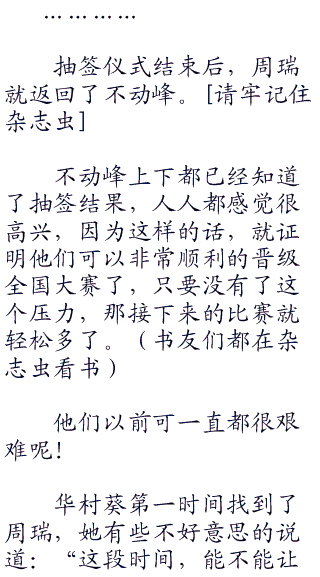 …………
抽签仪式结束后，周瑞
就返回了不动峰。[请牢记住
杂志虫]
不动峰上下都已经知道
了抽签结果，人人都感觉很
高兴，因为这样的话，就证
明他们可以非常顺利的晋级
全国大赛了，只要没有了这
个压力，那接下来的比赛就
轻松多了。（书友们都在杂
志虫看书）
他们以前可一直都很艰
难呢！
华村葵第一时间找到了
周瑞，她有些不好意思的说
道：“这段时间，能不能让